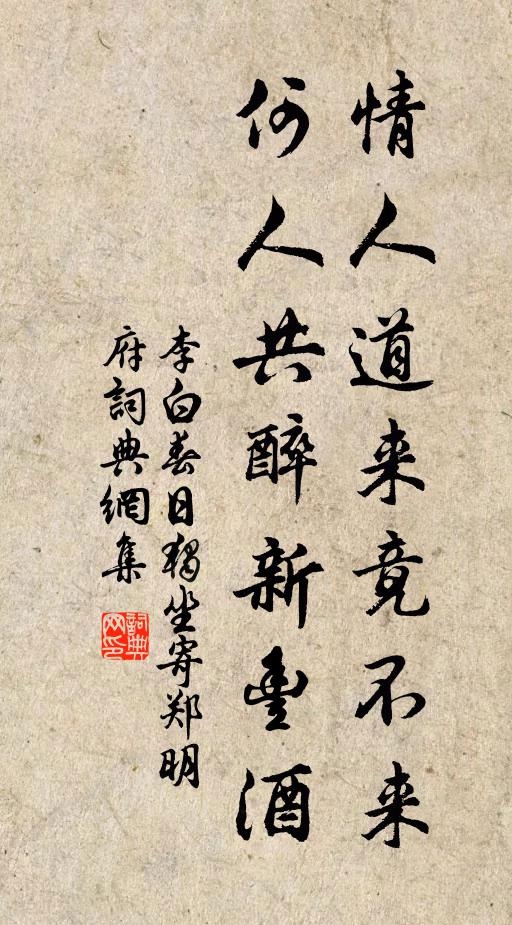 情人道来竟不来
何人共醉新豐酒
李白春日獨坐寄郑明
府詞典網集
詞典
网印